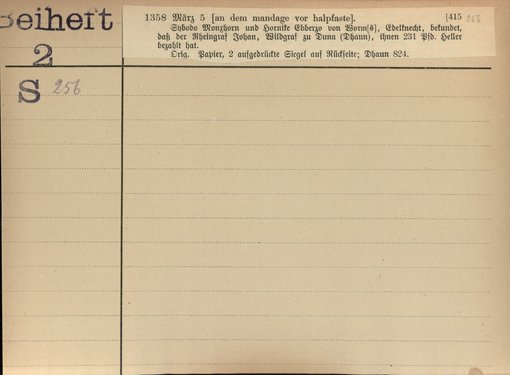 Beiheft
2
S 256
1358 März 5 [an dem mandage vor halpfaste]. [415 256
Sybodo Monzhorn und Hornike Ebberzo von Worm[s], Edelknecht, bekundet,
daß der Rheingraf Johan, Wildgraf zu Duna (Dhaun), ihnen 231 Pfd. Heller
bezahlt hat.
Orig. Papier, 2 aufgedrückte Siegel auf Rückseite; Dhaun 824.